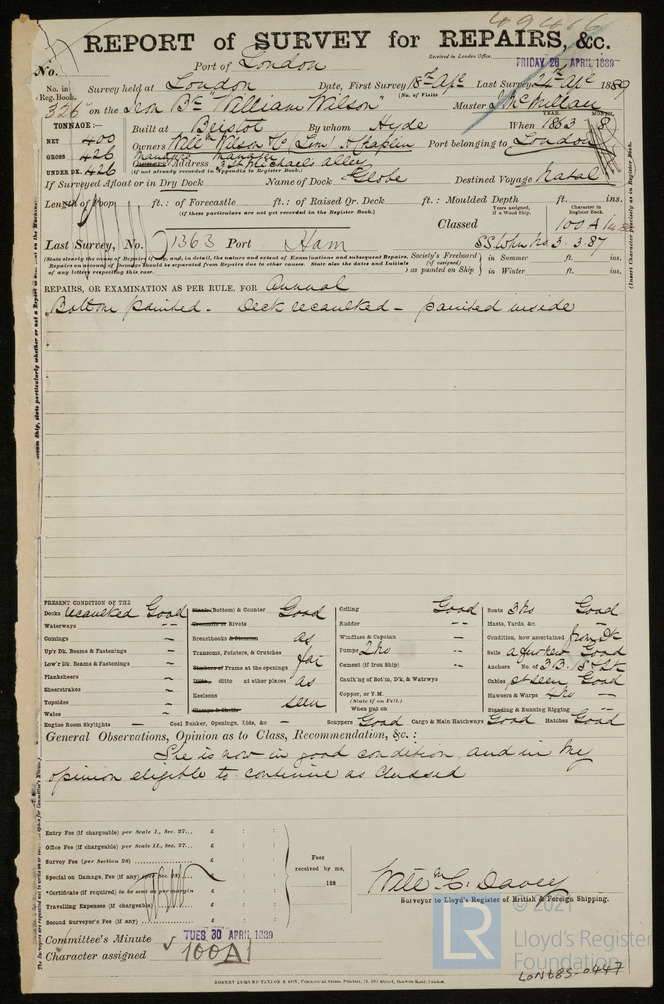 49416
REPORT of SURVEY for REPAIRS, &c.
Port of London
Received in London Office,
FRIDAY 26 APRIL 1889
No.
No. in Reg. Book.
Survey held at London Date, First Survey 18th Apl Last Survey 24th Apl 1889
(No. of Visits
326 on the Iron Bk "William Wilson" Master J McMillan
TONNAGE:—
NET 400
GROSS 426
UNDER DK. 426
Built at Bristol By whom Hyde When 1883 8
YEAR. MONTH.
Owners Willm Wilson Co Lim. Chaplin Port belonging to London
Owners' Address 3 St Michaels alley
(if not already recorded in Appendix to Register Book.)
If Surveyed Afloat or in Dry Dock Name of Dock Globe Destined Voyage Natal
Length of Poop ft.: of Forecastle ft.: of Raised Qr. Deck ft.: Moulded Depth ft. ins.
(if these particulars are not yet recorded in the Register Book.)
Years assigned, if a Wood Ship.
Character in Register Book.
Classed 100 A
Last Survey, No. 1363 Port Ham
S.S. No 3. 3.87
(State clearly the cause of Repairs if any, and, in detail, the nature and extent of Examinations and subsequent Repairs.
Repairs on account of Damage should be separated from Repairs due to other causes. State also the dates and Initials
of any letters respecting this case.
Society's Freeboard (if assigned) as painted on Ship
in Summer ft. ins.
in Winter ft. ins.
REPAIRS, OR EXAMINATION AS PER RULE, FOR Annual
Bottom painted - Deck recaulked - painted inside
PRESENT CONDITION OF THE
Decks recaulked Good
Waterways
Comings
Up'r Dk. Beams & Fastenings
Low'r Dk. Beams & Fastenings
Planksheers
Sheerstrakes
Topsides
Wales
Engine Room Skylights
Plank (Bottom) & Counter Good
Treenails or Rivets
Breasthooks & Stemson as
Transoms, Pointers, & Crutches
Timbers of Frame at the openings
Ditto, ditto at other places as
Keelsons
Clamps & Shelfs seen
Coal Bunker, Openings, Lids, &c.
Ceiling Good
Rudder
Windlass & Capstan
Pumps 2 No
Cement (if Iron Ship)
Caulk'ng of Bot'm, D'k, & Watrwys
Copper, or Y.M.
(State if on Felt.)
When put on
Scuppers Good Cargo & Main Hatchways Good Hatches Good
Boats 3 No Good
Masts, Yards, &c.
Condition, how ascertained from Dk
Sails Good
Anchors No. of 3 B. 1 S
Cables pt seen Good
Hawsers & Warps 4 No
Standing & Running Rigging
General Observations, Opinion as to Class, Recommendation, &c.:
She is now in good condition, and in my
opinion eligible to continue as Classed
Entry Fee (if chargeable) per Scale I., Sec. 27... £ : :
Office Fee (if chargeable) per Scale II., Sec. 27... £ : :
Survey Fee (per Section 28) £ : :
Special on Damage, Fee (if any) £ : :
*Certificate (if required) to be sent as per margin
Travelling Expenses (if chargeable) £ : :
Second Surveyor's Fee (if any) £ : :
Fees received by me,
188
Willm C. Davey
Surveyor to Lloyd's Register of British & Foreign Shipping.
Committee's Minute TUES 30 APRIL 1889
Character assigned 100A1
© 2021
LR
Lloyd's Register
Foundation
LON685-0447
ROBERT EDMUND TAYLOR & SON, Commercial Steam Printers,